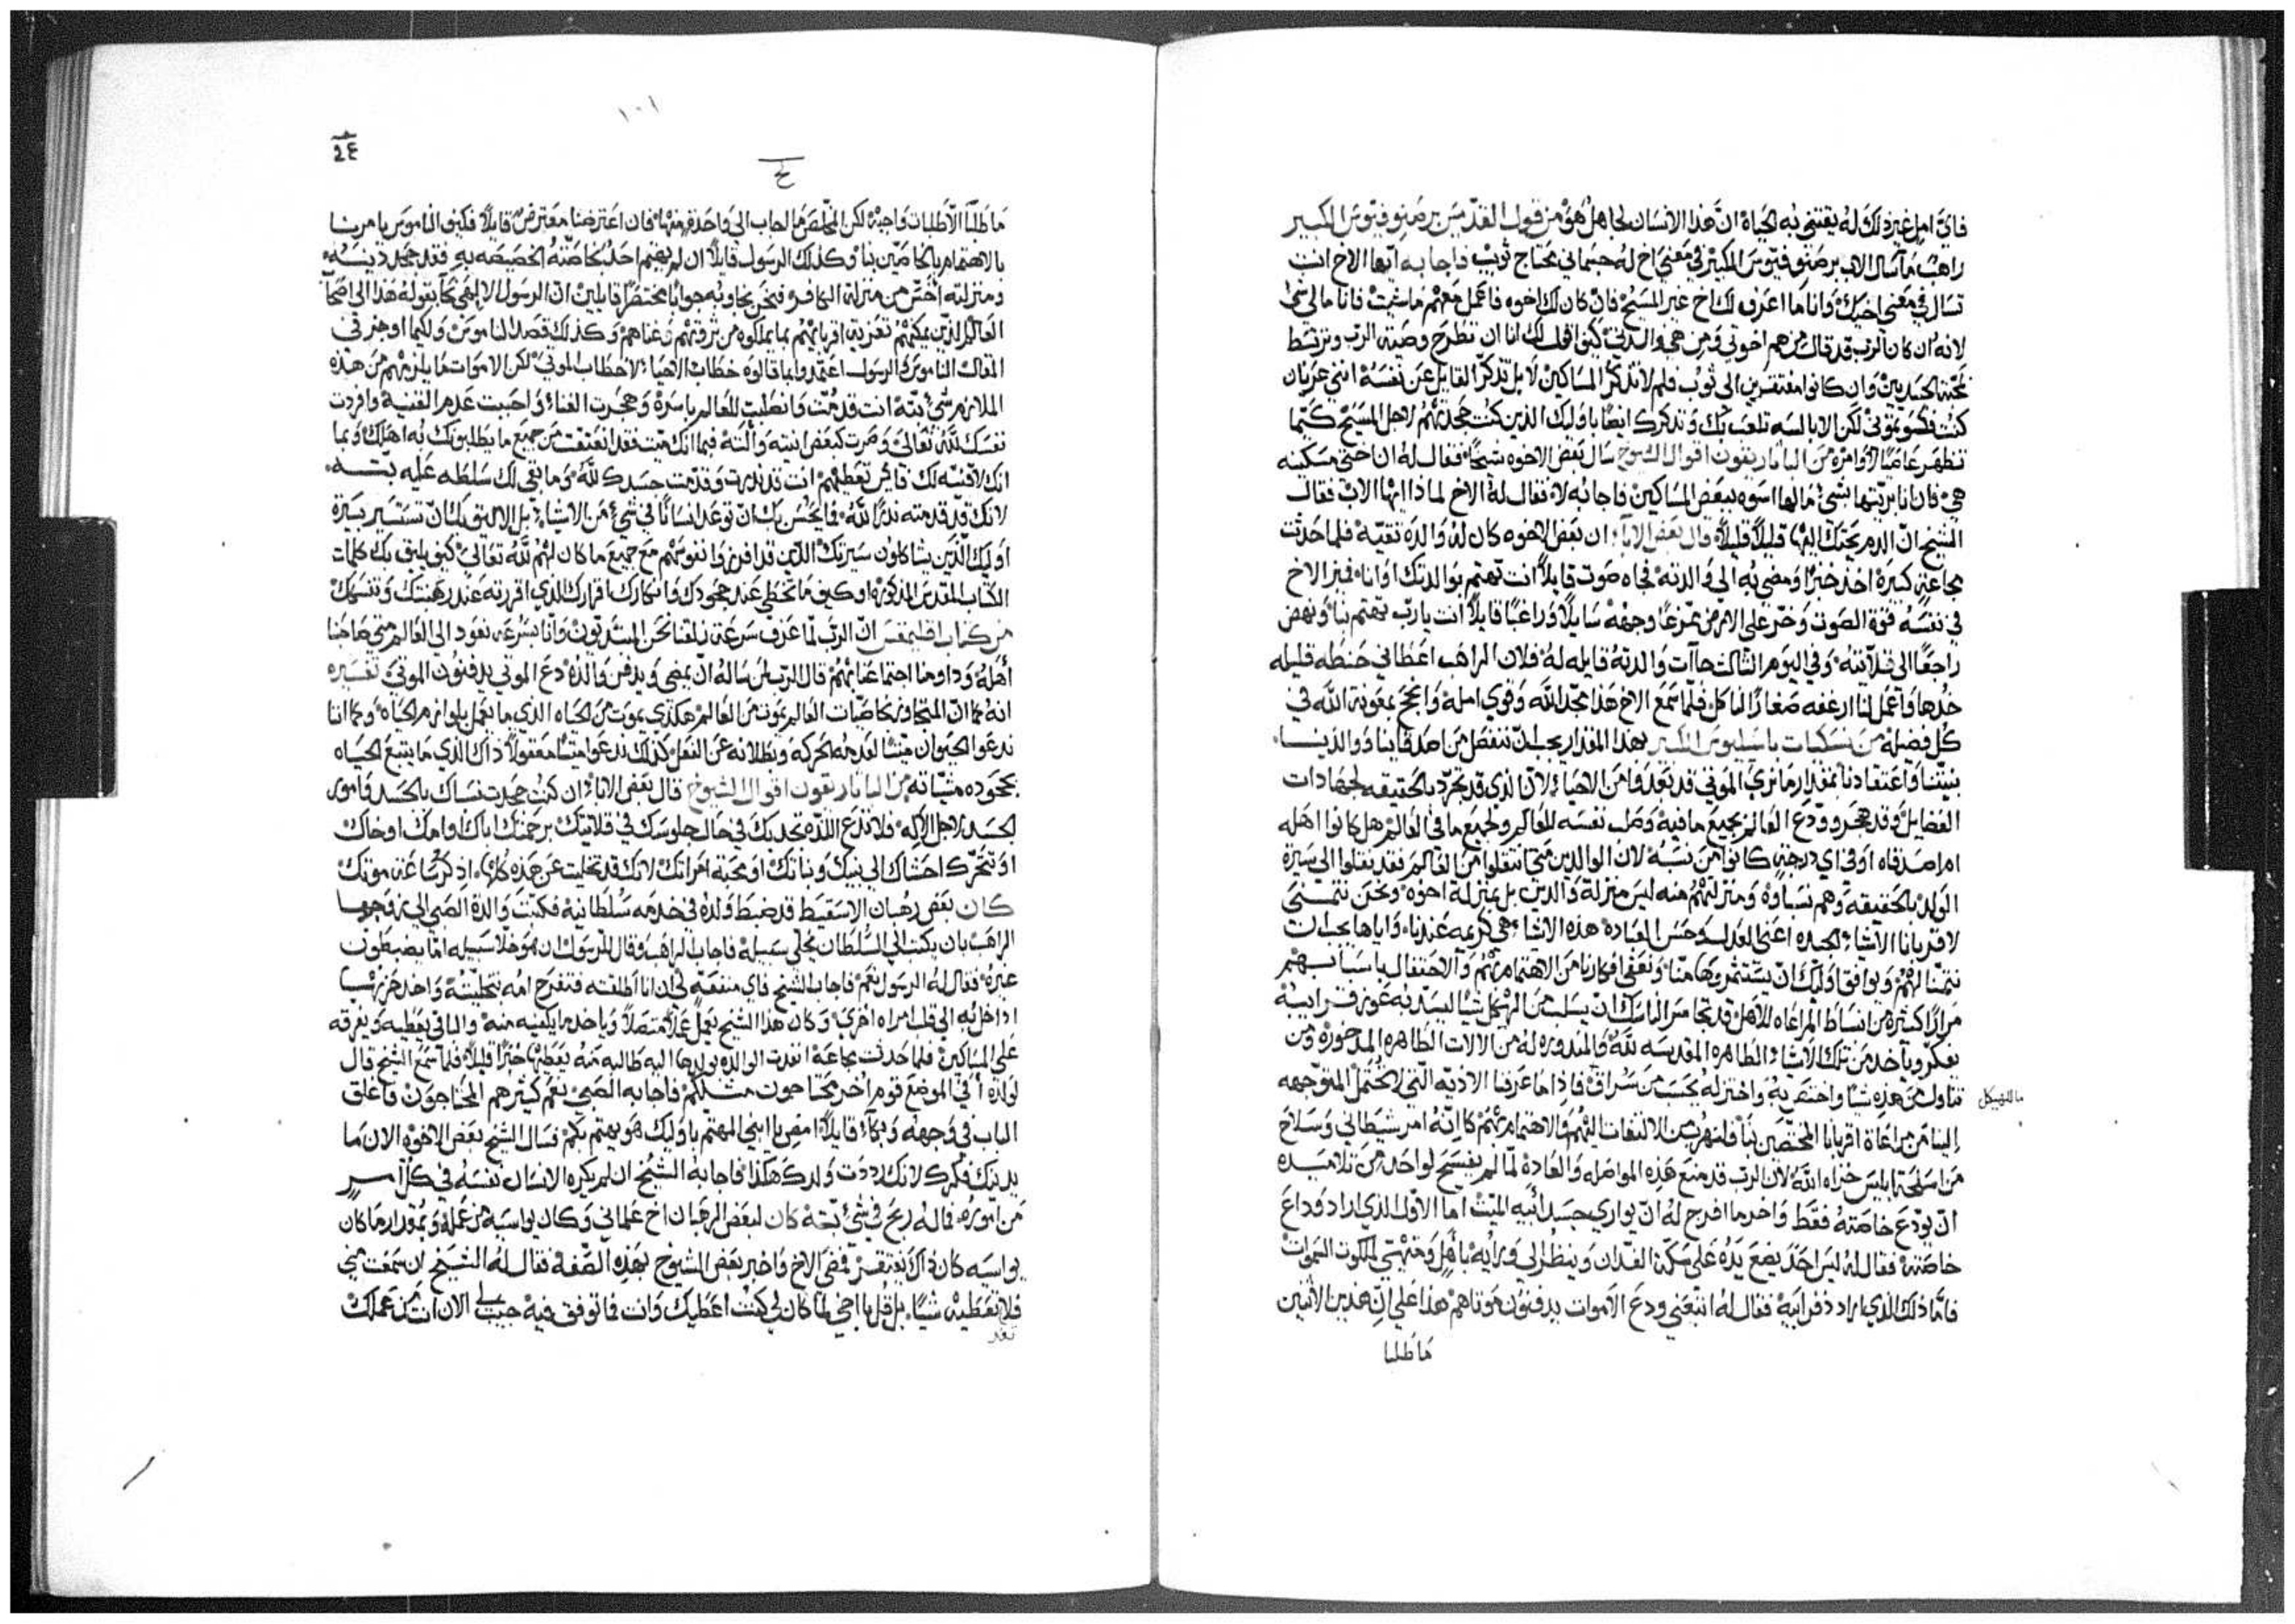 فايّ امل غير ذلك له يقتني به الحياة انّ هذا الانسان لجاهل هو من قول القديس برصنوفيوس الكبير
راهب ما سال الاب برصنوفيوس الكبير في معني اخ له جسماني محتاج ثوب فاجابه ايها الاخ انت
تسال في معني اخيك وانا ما اعرف لك اخ غير المسيح فان كان لك اخوه فاعمل معهم ماشيت فانا مالي شي
لانه ان كان الرب قد قال من هم اخوتي ومن هي والدتي كيف اقول لك انا ان تطرح وصية الرب وترتبط
بمحبة الجسديين وان كانوا مفتقرين الي ثوب فلم لا تذكر المساكين لا بل تذكر القايل عن نفسه انني عريان
كنت فكسوتموني لكن الابالسه تلعب بك وتذكرك ايضا باوليك الذين كنت جحدتهم لاجل المسيح كيما
تظهر عاصيا لاوامره من الباتاريقون اقوال الشيوخ سال بعض الاخوه شيخا فقال له ان اختي مسكينه
هي فان انا بريتها بشي مالها اسوه ببعض المساكين فاجابه لا فقال له الاخ لماذا ايها الاب فقال
الشيخ انّ الدم يجتذبك اليها قليلاً قليلاً قال بعض الابآء ان بعض الاخوه كان له والده تقيّه فلما حدثت
مجاعة كبيره اخذ خبزا ومضي به الي والدته فجاه صوت قايلاً انت تهتم بوالدتك او انا فميز الاخ
في نفسه قوة الصوت وخرّ علي الارض ممرغا وجهه سايلاً وراغبا قايلاً انت يارب تهتم بنا ونهض
راجعا الي قلايته وفي اليوم الثالث جآت والدته قايله له فلان الراهب اعطاني حنطه قليله
خذها واعمل لنا ارغفه صغارا لناكل فلما سمع الاخ هذا مجّد الله وقوي امله وانجح بمعونة الله في
كل فضيلة من نسكيات باسيليوس الكبير بهذا المقدار يجب انّ ننفصل من اصدقاينا ووالدينا
بنيتنا واعتقادنا بمقدار مانري الموتي قد بعدوا من الاحياء لانّ الذي قد تجرّد بالحقيقه لجهادات
الفضايل وقد هجر وودع العالم بجميع مافيه وصلب نفسه للعالم ولجميع ما في العالم هل كانوا اهله
ام اصدقاه او في اي درجة كانوا من نسبه لان الوالدين متي انتقلوا من العالم فقد نقلوا الي سيرة
الولد بالحقيقه وهم نسباوه ومنزلتهم منه ليس منزلة والدين بل بمنزلة اخوه ونحن نتمنى
لاقربانا الاشيا الجيده اعني العدل وحسن العباده هذه الاشياء هي كريمه عندنا واياها يجب ان
نتمنّا لهم ويوافق اوليك انّ يستثمروها منّا ونعفي افكارنا من الاهتمام بهم والاحتفال باسبابهم
مرارا كثيره من انبساط المراعاه للاهل قد تجاسر الناسك انّ يسلب من الهيكل شيا ليسد به عوز قرابيبه
نفكر وياخذ من تلك الاشيا الطاهره المقدسه لله والمنذوره له من الالات الطاهره المذخوره ومن
تناول من هذه شيا واختص به واختزله يحسب من سراق فاذا ما عرفنا الاذيه التي لا تحتمل المتوجهه
الينا من مراعاة اقربانا المختصين بنا فلنهرب من الالتفات اليهم والاهتمام بهم كانه امر شيطاني وسلاح
من اسلحة ابليس خزاه الله لان الرب قد منع هذه المواصله والعادة لما لم يفسح لواحد من تلاميذه
انّ يودع خاصته فقط واخر ما افرج له انّ يواري جسد ابيه الميت اما الاول الذي اراد وداع
خاصته فقال له ليس احد يضع يده علي سكة الفدان وينظر الي ورايه باهل ومنتهي لملكوت السموات
فامّا ذلك الذي اراد دفن ابيه فقال له اتبعني ودع الاموات يدفنون موتاهم هذا علي انّ هذين الاثنين
ما طلبا
ما للهيكل
١٠١
ح
ما طلبا الّا طلبات واجبة لكن المخلص ما اجاب الي واحدة منها فان اعترضنا معترض قايلاً فكيف الناموس يامرنا
بالاهتمام بالخاصّين بنا وكذلك الرسول قايلاً ان لم يهتم احد بخاصّته الخصيصه به فقد جحد دينه
ومنزلته اخسّ من منزلة الكافر فنحن نجاوبه جوابا مختصرا قايلين انّ الرسول الالهي نحا بقوله هذا الي اصحآب
العالم الذين يمكنهم تعزية اقربايهم بما يملكوه من ثروتهم وغناهم وكذلك قصد الناموس ولكيما اوجز في
المقال الناموس والرسول اعتمدوا بما قالوه خطاب الاحيا لا خطاب الموتي لكن الاموات ما يلزمهم من هذه
الملازم شي بتّه انت قد متّ وانصلبت للعالم باسره وهجرت الغناء واحببت عدم القنيه وافردت
نفسك لله تعالي وصرت كبعض انيته وآلته فبما انك ميت فقد انعتقت من جميع ما يطلبونك به اهلك وبما
انك لا قنيه لك فايش تعطيهم انت قد نذرت وقدمت جسدك لله وما بقي لك سلطه عليه بتّه
لانك قد قدمته نذرا لله فما يحسن بك انّ توعد انسانا في شي من الاشياء بل الاليق بك انّ تستسير بسيرة
اوليك الذين يشاكلون سيرتك الذين قد افرزوا نفوسهم مع جميع ما كان لهم لله تعالي كيف يليق بك كلمات
الكتاب المقدس المذكوره او كيف ما تخطي عند جحودك وانكارك اقرارك الذي اقررته عند رهبنتك وتنسكك
من كتاب اقليمقس انّ الرب لما عرف سرعة زلقنا نحن المبتدئون وانا بسرعه نعود الي العالم متي صاحبنا
أهله وداومنا اجتماعنا بهم قال الرب لمن ساله انّ يمضي ويدفن والده دع الموتي يدفنون الموتي تفسيره
انه كما انّ المتجاوز خاصيات العالم يموت من العالم هكذي يموت من الحياه الذي ما يعمل بلوازم الحياه وكما اننا
ندعوا الحيوان ميتا لعدمه الحركه وبطلانه عن الفعل كذلك ندعوا ميتا معقولاً ذاك الذي ما يتبع الحياه
بجحوده مشياته من الباتاريقون اقوال الشيوخ قال بعض الابآء ان كنت جحدت نسباك بالجسد وامور
الجسد لاجل الاله فلا تدع اللذه تجذبك في حال جلوسك في قلايتك برحمتك اباك او امك او خاك
او تتحرّك احشاك الي بنيك وبناتك او محبة امراتك لانك قد تخليت عن هذه كلها اذكر ساعة موتك
كان بعض رهبان الاسقيط قد ضبط ولده في خدمه سلطانيه فكتبت والدة الصبي الي زوجها
الراهب بان يكتب الي السلطان يخلي سبيله فاجاب الراهب وقال للرسول ان هو خلا سبيله اما يضبطون
غيره فقال له الرسول نعم فاجاب الشيخ فاي منفعة لي ان انا اطلقته فتفرح امه بتخليته واخذ حزنها
ادخل به الي قلب امراه اخري وكان هذا الشيخ يعمل عملاً متصلاً وياخذ ما يكفيه منه والباقي يعطيه ويفرقه
علي المساكين فلما حدثت مجاعة انفذت الوالده بولدها اليه طالبه منه يعطيها خبزا قليلا فلما سمع الشيخ قال
لولده أفي الموضع قوم اخر محتاجون مثلكم فاجابه الصبي نعم كثير هم المحتاجون فاغلق
الباب في وجهه وبكاء قايلاً امض يا ابني المهتم باوليك هو يهتم بكم فسال الشيخ بعض الاخوه الان ما
يدينك فكرك لانك رددت ولدك هكذا فاجابه الشيخ ان لم يكره الانسان نفسه في كل امر
من اموره فما له ربح في شي بتّه كان لبعض الرهبان اخ علماني وكان يواسيه من عمله وبمقدار ما كان
يواسيه كان ذاك يفتقر فمضي الاخ واخبر بعض الشيوخ بهذه الصفه فقال له الشيخ ان سمعت مني
فلا تعطيه شيا بل قل يا اخي لما كان لي كنت اعطيك وانت فما توفق فيه جيب لي الان انت من عملك